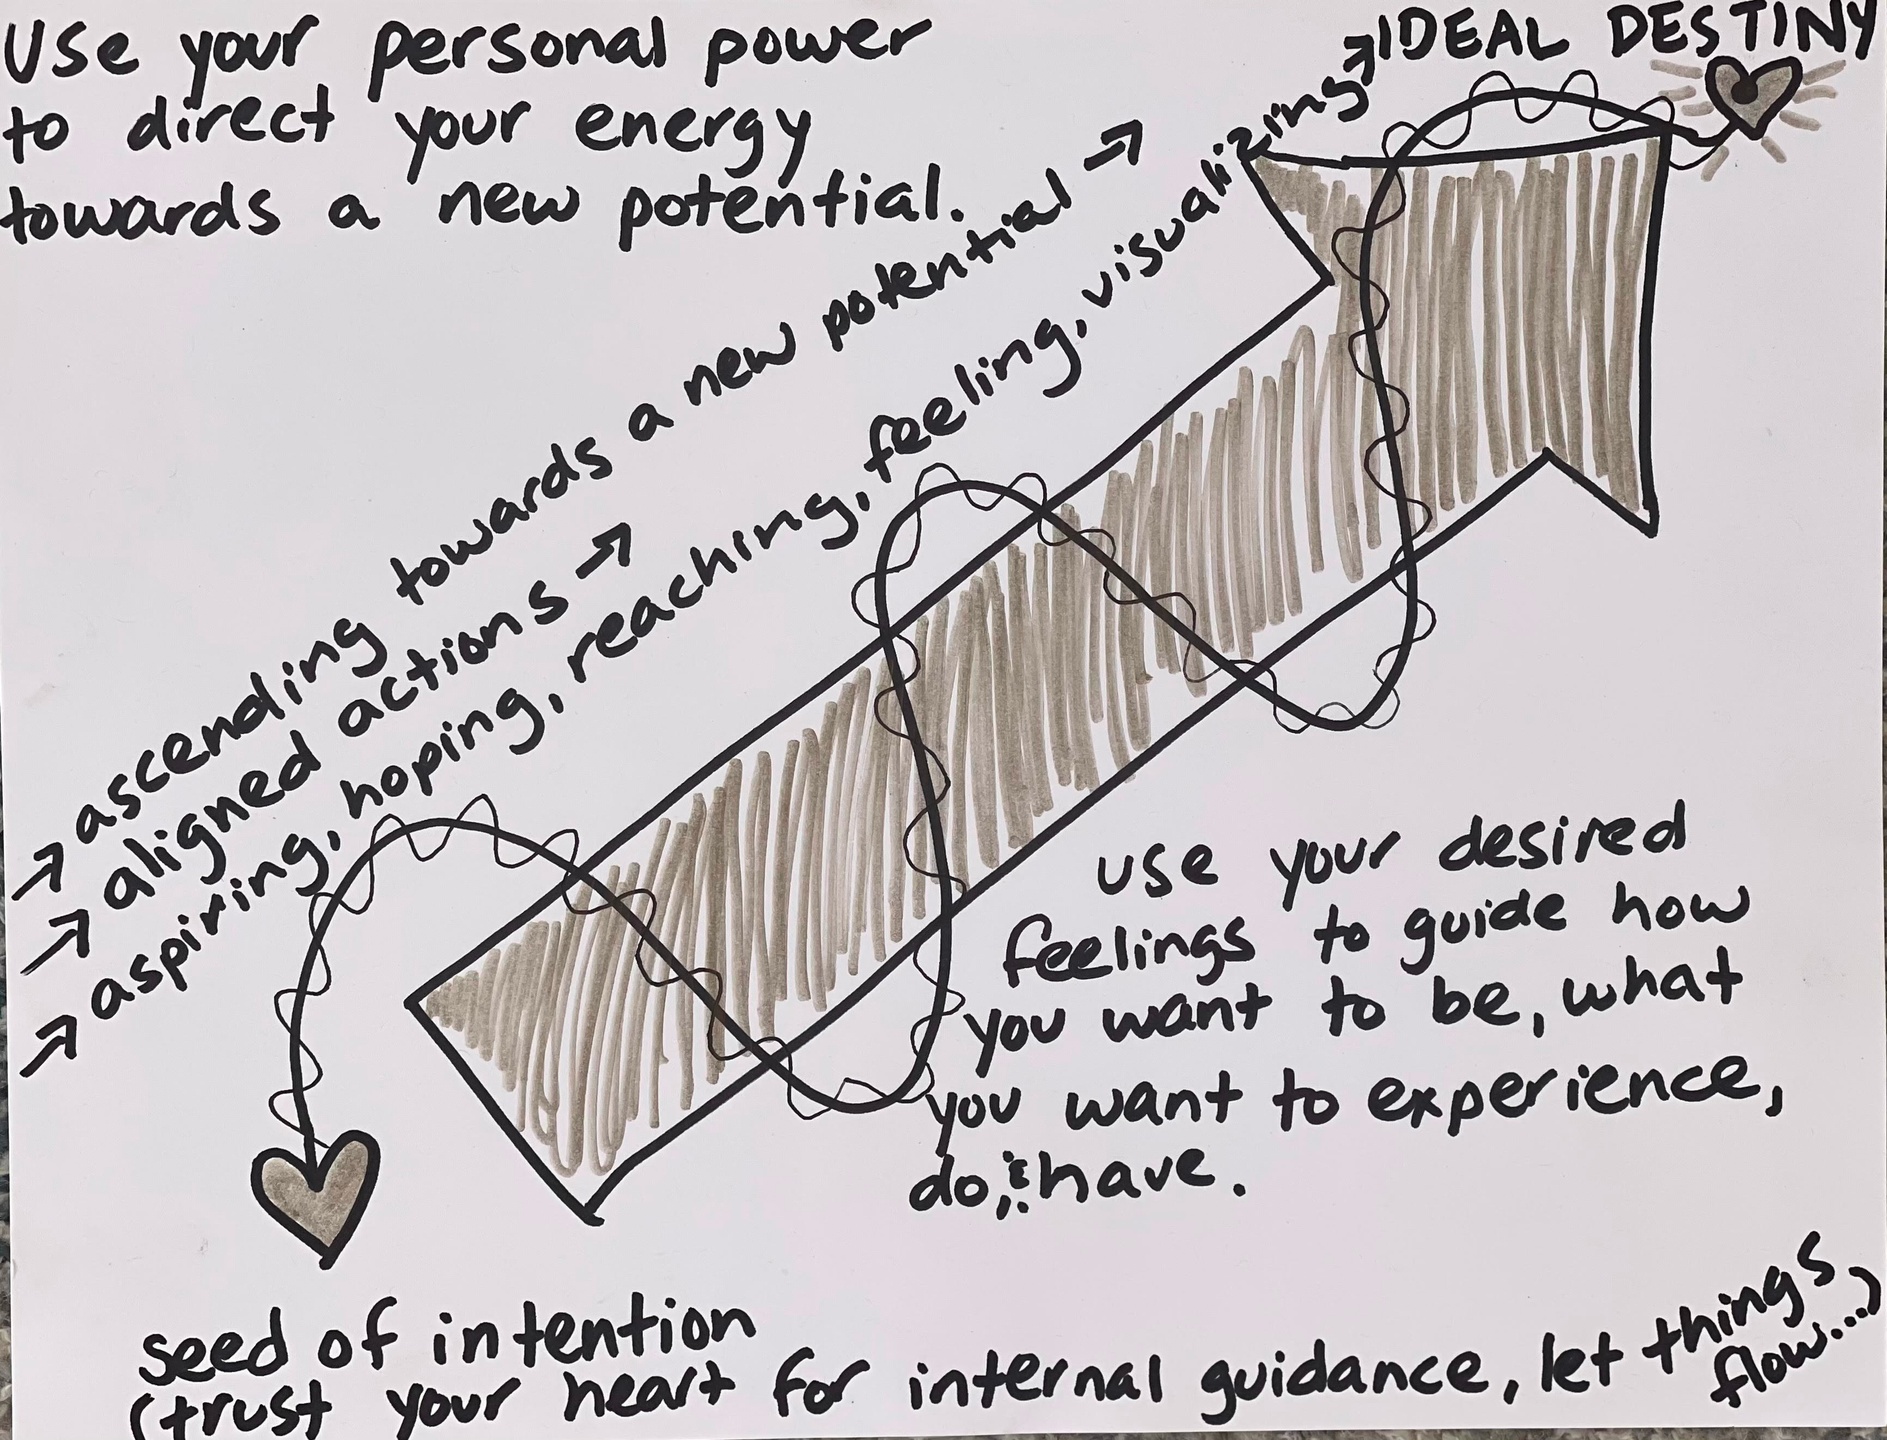 Use your personal power
to direct your energy
towards a new potential.
→ IDEAL DESTINY
→ ascending towards a new potential →
→ aligned actions →
→ aspiring, hoping, reaching, feeling, visualizing
use your desired
feelings to guide how
you want to be, what
you want to experience,
do, & have.
seed of intention
(trust your heart for internal guidance, let things
flow...)